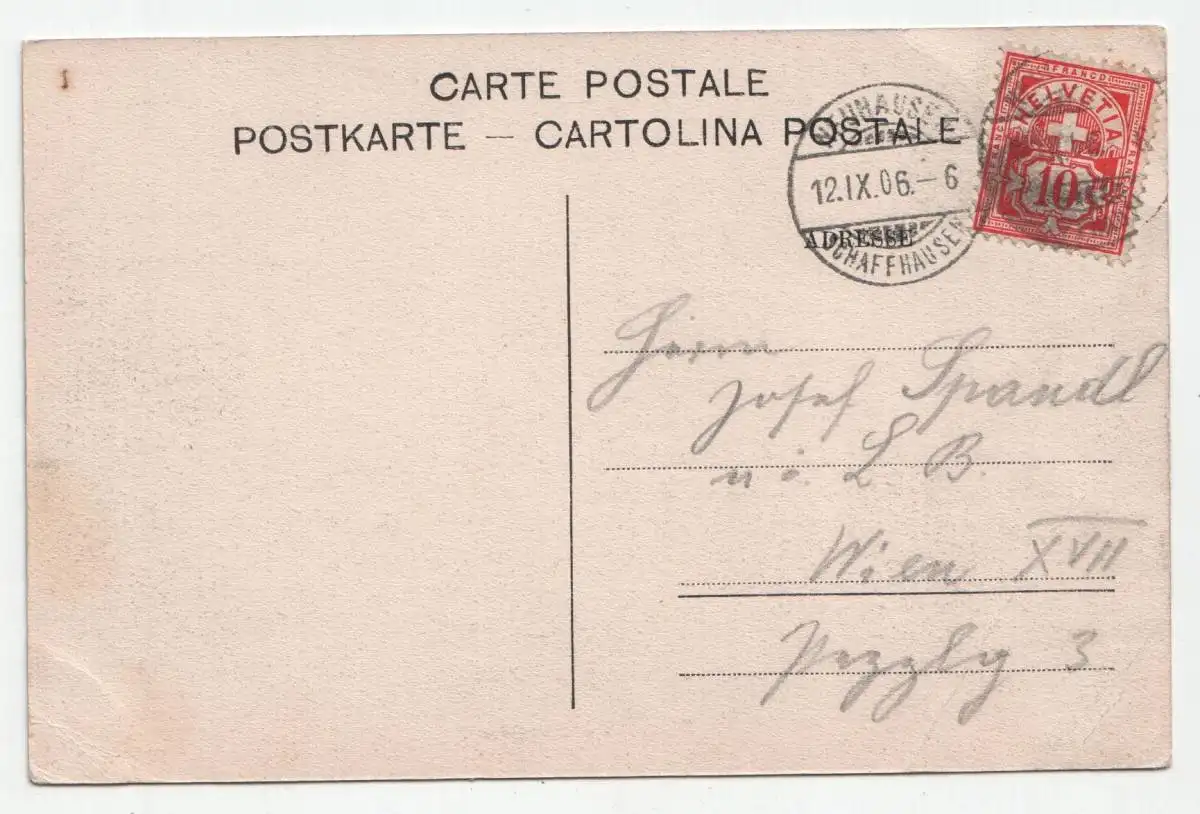 CARTE POSTALE
POSTKARTE — CARTOLINA POSTALE
NEUHAUSEN
12.IX.06.–6
SCHAFFHAUSEN
FRANCO
HELVETIA
FRANCO
10
ADRESSE
Herrn
Josef Spandl
n. ö. L. B.
Wien XVII
Pezzlg 3